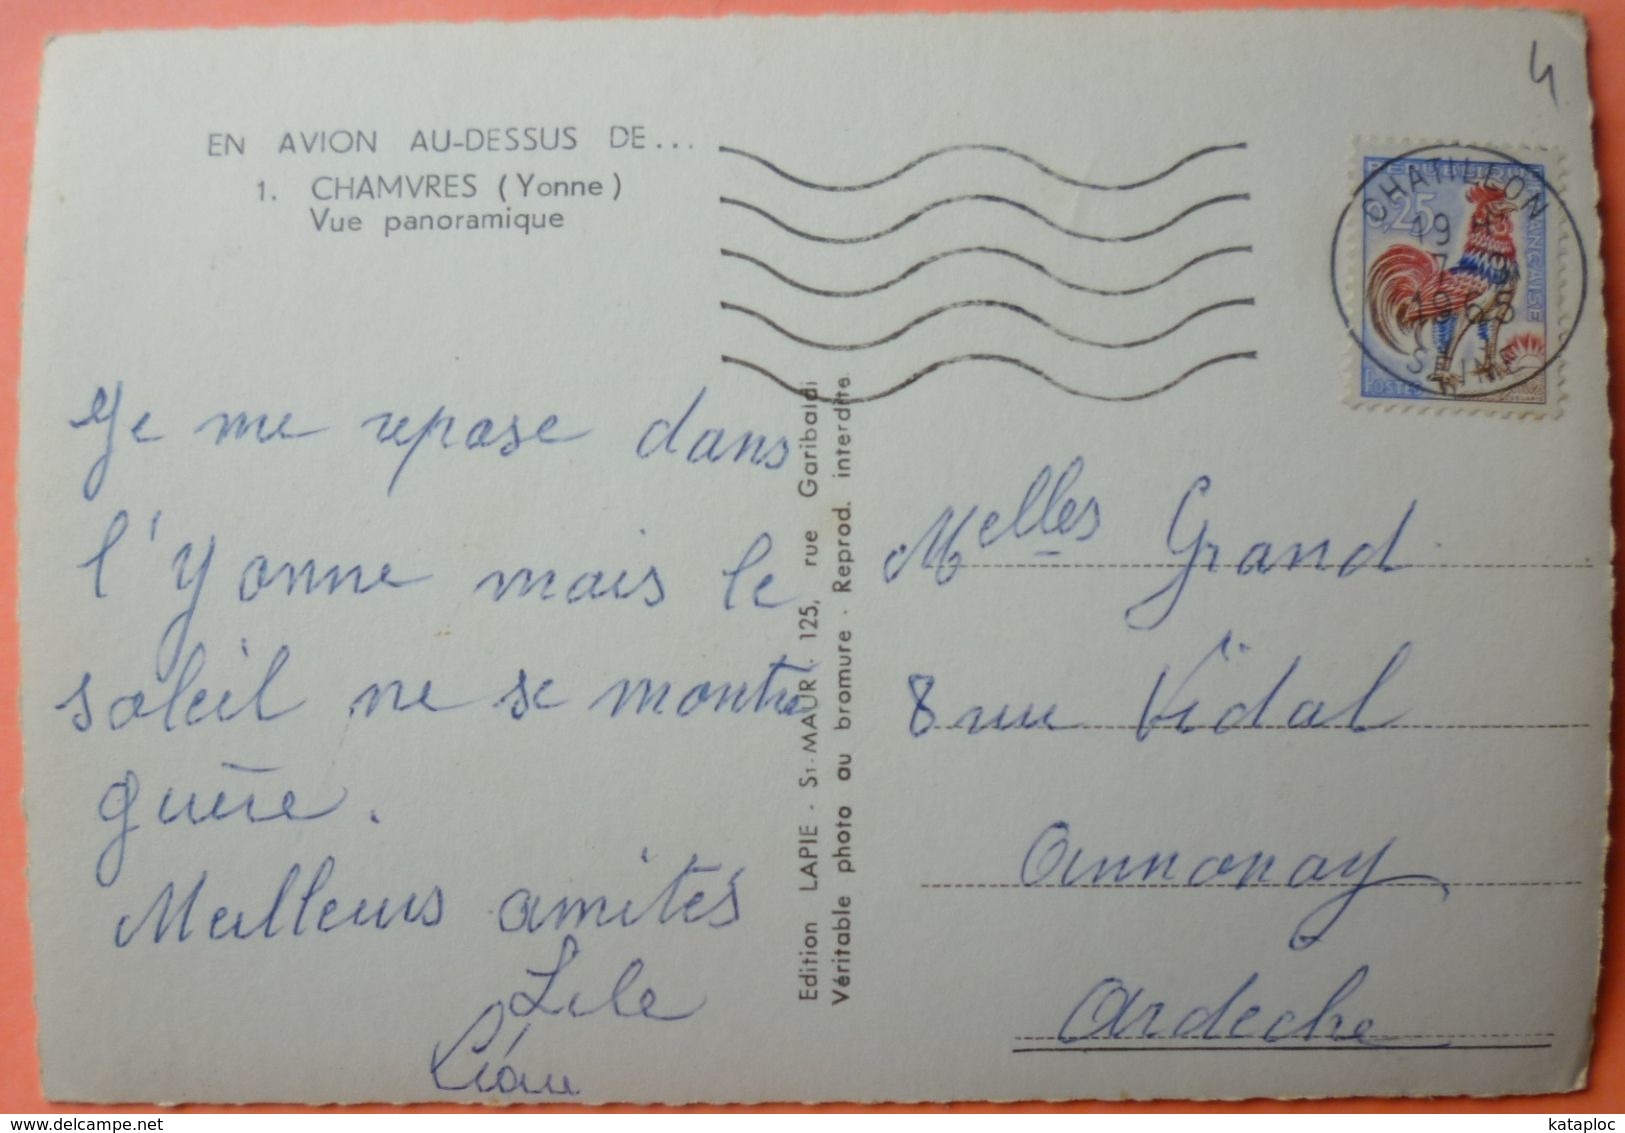 4
EN AVION AU-DESSUS DE...
1. CHAMVRES (Yonne)
Vue panoramique
RÉPUBLIQUE FRANÇAISE
0,25
POSTES
CHATILLON
19 H
7
1965
SEINE
Je me repose dans
l'Yonne mais le
soleil ne se montre
guère.
Meilleurs amitiés
Lile
Edition LAPIE - St-MAUR. 125, rue Garibaldi
Véritable photo au bromure - Reprod. interdite.
Melles Grand
8 rue Vidal
Annonay
Ardèche
kataploc